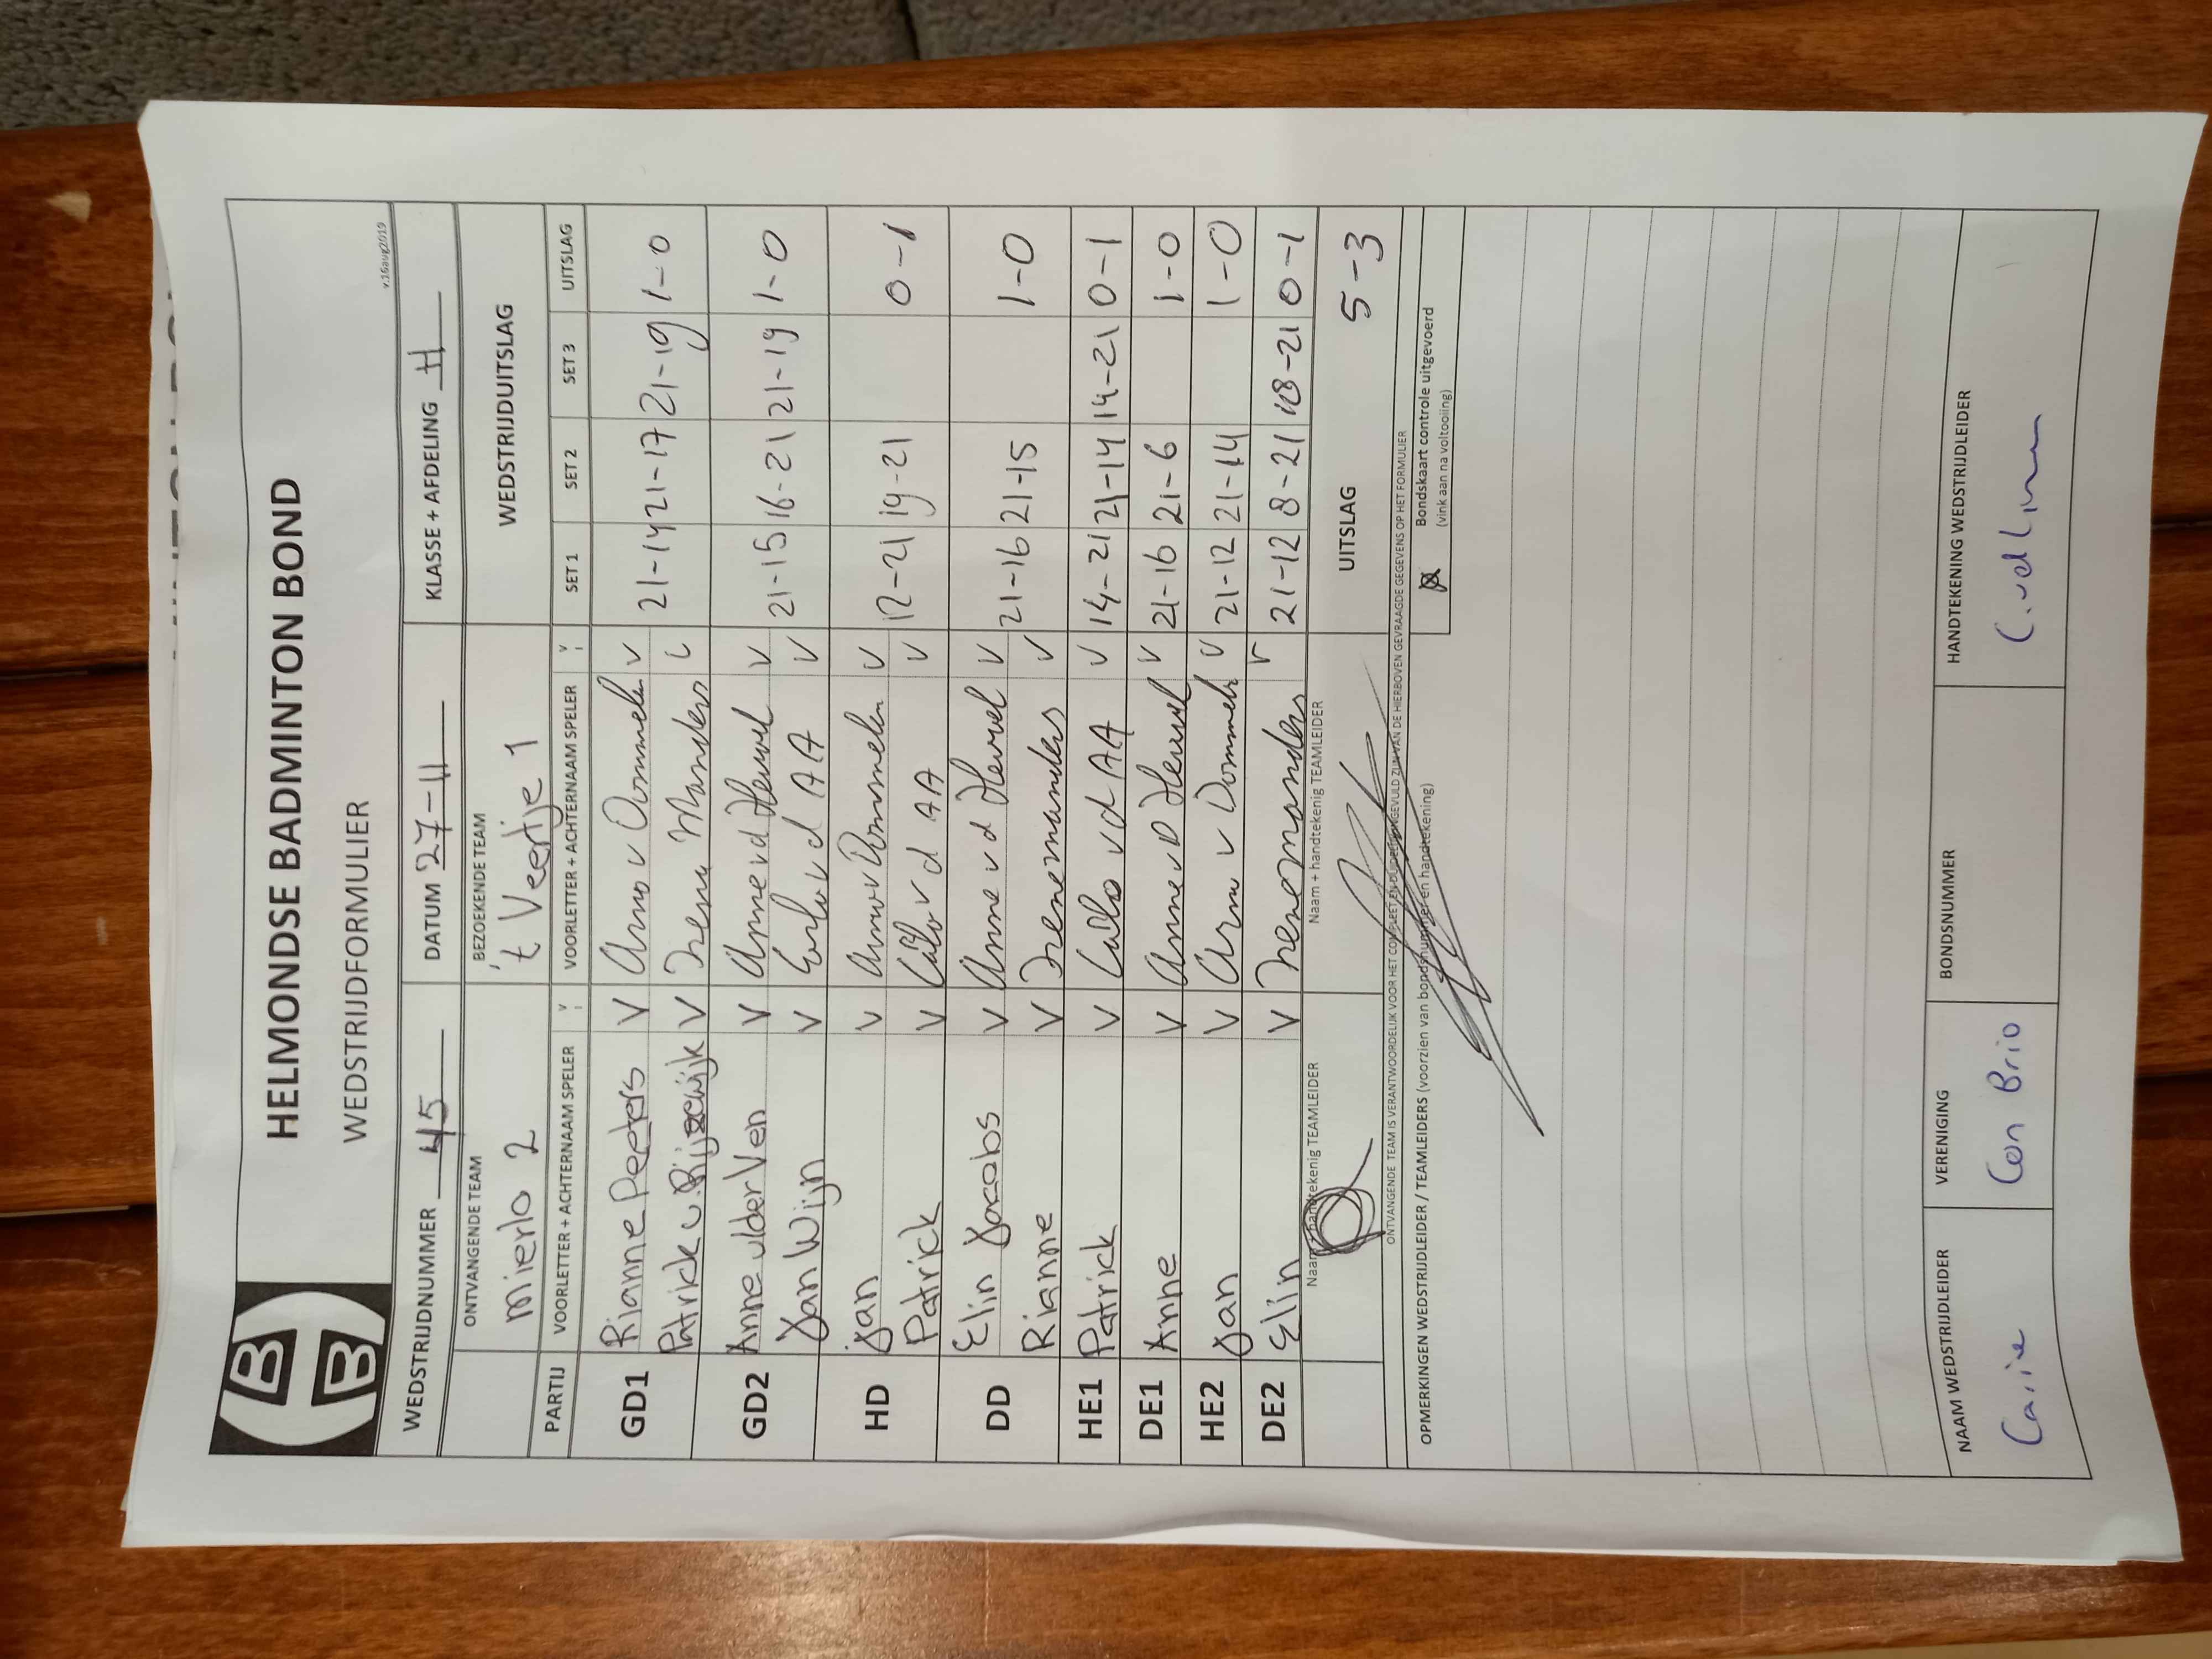 HELMONDSE BADMINTON BOND
WEDSTRIJDFORMULIER
v.16aug2019
WEDSTRIJDNUMMER 45 DATUM 27-11 KLASSE + AFDELING H
ONTVANGENDE TEAM BEZOEKENDE TEAM WEDSTRIJDUITSLAG
mierlo 2 't Veertje 1
PARTIJ VOORLETTER + ACHTERNAAM SPELER VOORLETTER + ACHTERNAAM SPELER SET 1 SET 2 SET 3 UITSLAG
GD1 Rianne Peeters V Arno v Dommelen V
Patrick v. Rijsewijk V Irene Manders 21-14 21-17 21-19 1-0
GD2 Anne v/der Ven V Anne vd Heuvel V
Jan Wijn V vd AA V 21-15 16-21 21-19 1-0
HD Jan V Arno v Dommelen V
Patrick V vd AA V 12-21 19-21 0-1
DD Elin Jacobs V Anne vd Heuvel V
Rianne V Irene manders V 21-16 21-15 1-0
HE1 Patrick V vd AA V 14-21 21-14 14-21 0-1
DE1 Anne V Anne vD Heuvel V 21-16 21-6 1-0
HE2 Jan V Arno v Dommelen V 21-12 21-14 1-0
DE2 Elin V Irene manders V 21-12 8-21 18-21 0-1
Naam + handtekenig TEAMLEIDER Naam + handtekenig TEAMLEIDER UITSLAG 5-3
ONTVANGENDE TEAM IS VERANTWOORDELIJK VOOR HET COMPLEET EN DUIDELIJK INGEVULD ZIJN VAN DE HIERBOVEN GEVRAAGDE GEGEVENS OP HET FORMULIER
OPMERKINGEN WEDSTRIJDLEIDER / TEAMLEIDERS (voorzien van bondsnummer en handtekening)
Bondskaart controle uitgevoerd
(vink aan na voltooiing)
NAAM WEDSTRIJDLEIDER VERENIGING BONDSNUMMER HANDTEKENING WEDSTRIJDLEIDER
Con Brio